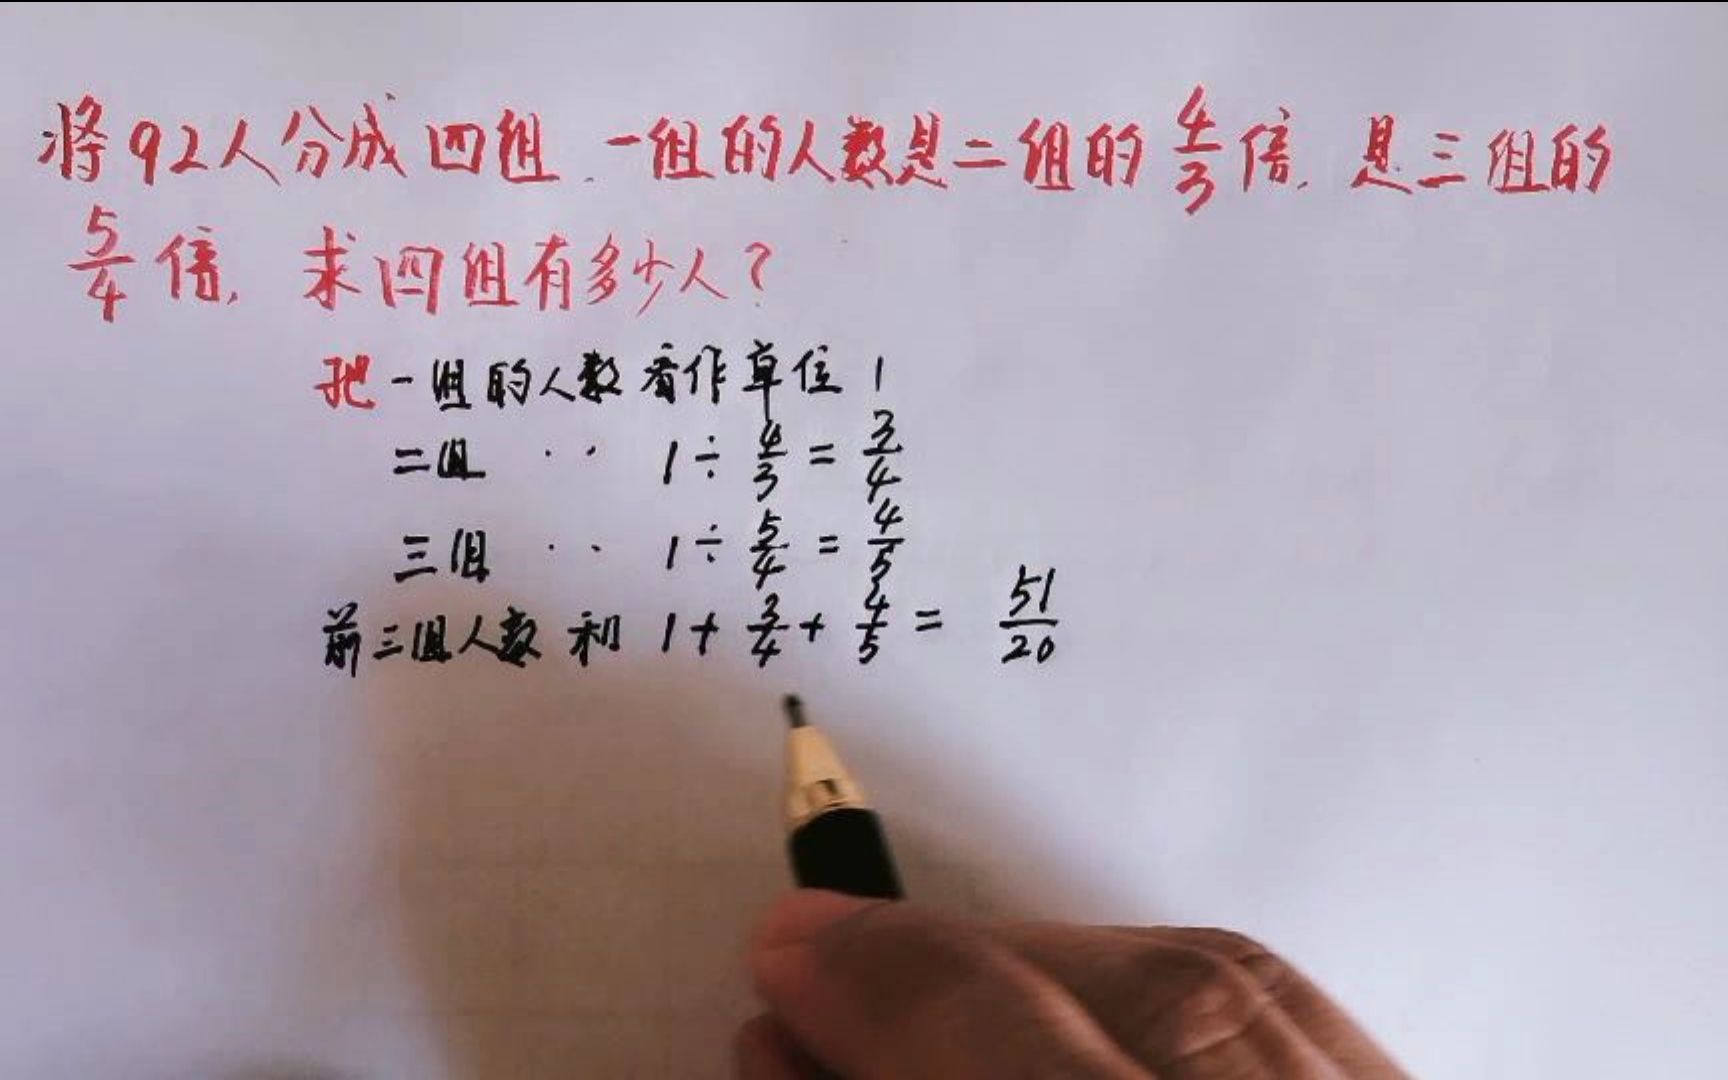 将92人分成四组.一组的人数是二组的4/3倍.是三组的
5/4倍,求四组有多少人?
把一组的人数看作单位1
二组‥1÷4/3=3/4
三组‥1÷5/4=4/5
前三组人数和1+3/4+4/5=51/20